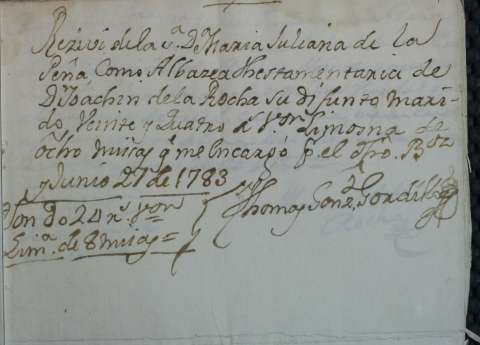 Rezivi de la s.ª D.ª Maria Juliana de la
Peña, Como Albazea thestamentaria de
D.n Joachin de la Rocha su difunto mari-
do, Veinte y Quatro r.s v.on Limosna de
ocho misas q.e me Encargó p.r el
y Junio 27 de 1783
Son 24 r.s v.on
Lim.ª de 8 misas =
Thomas Gonz.z Gordillo